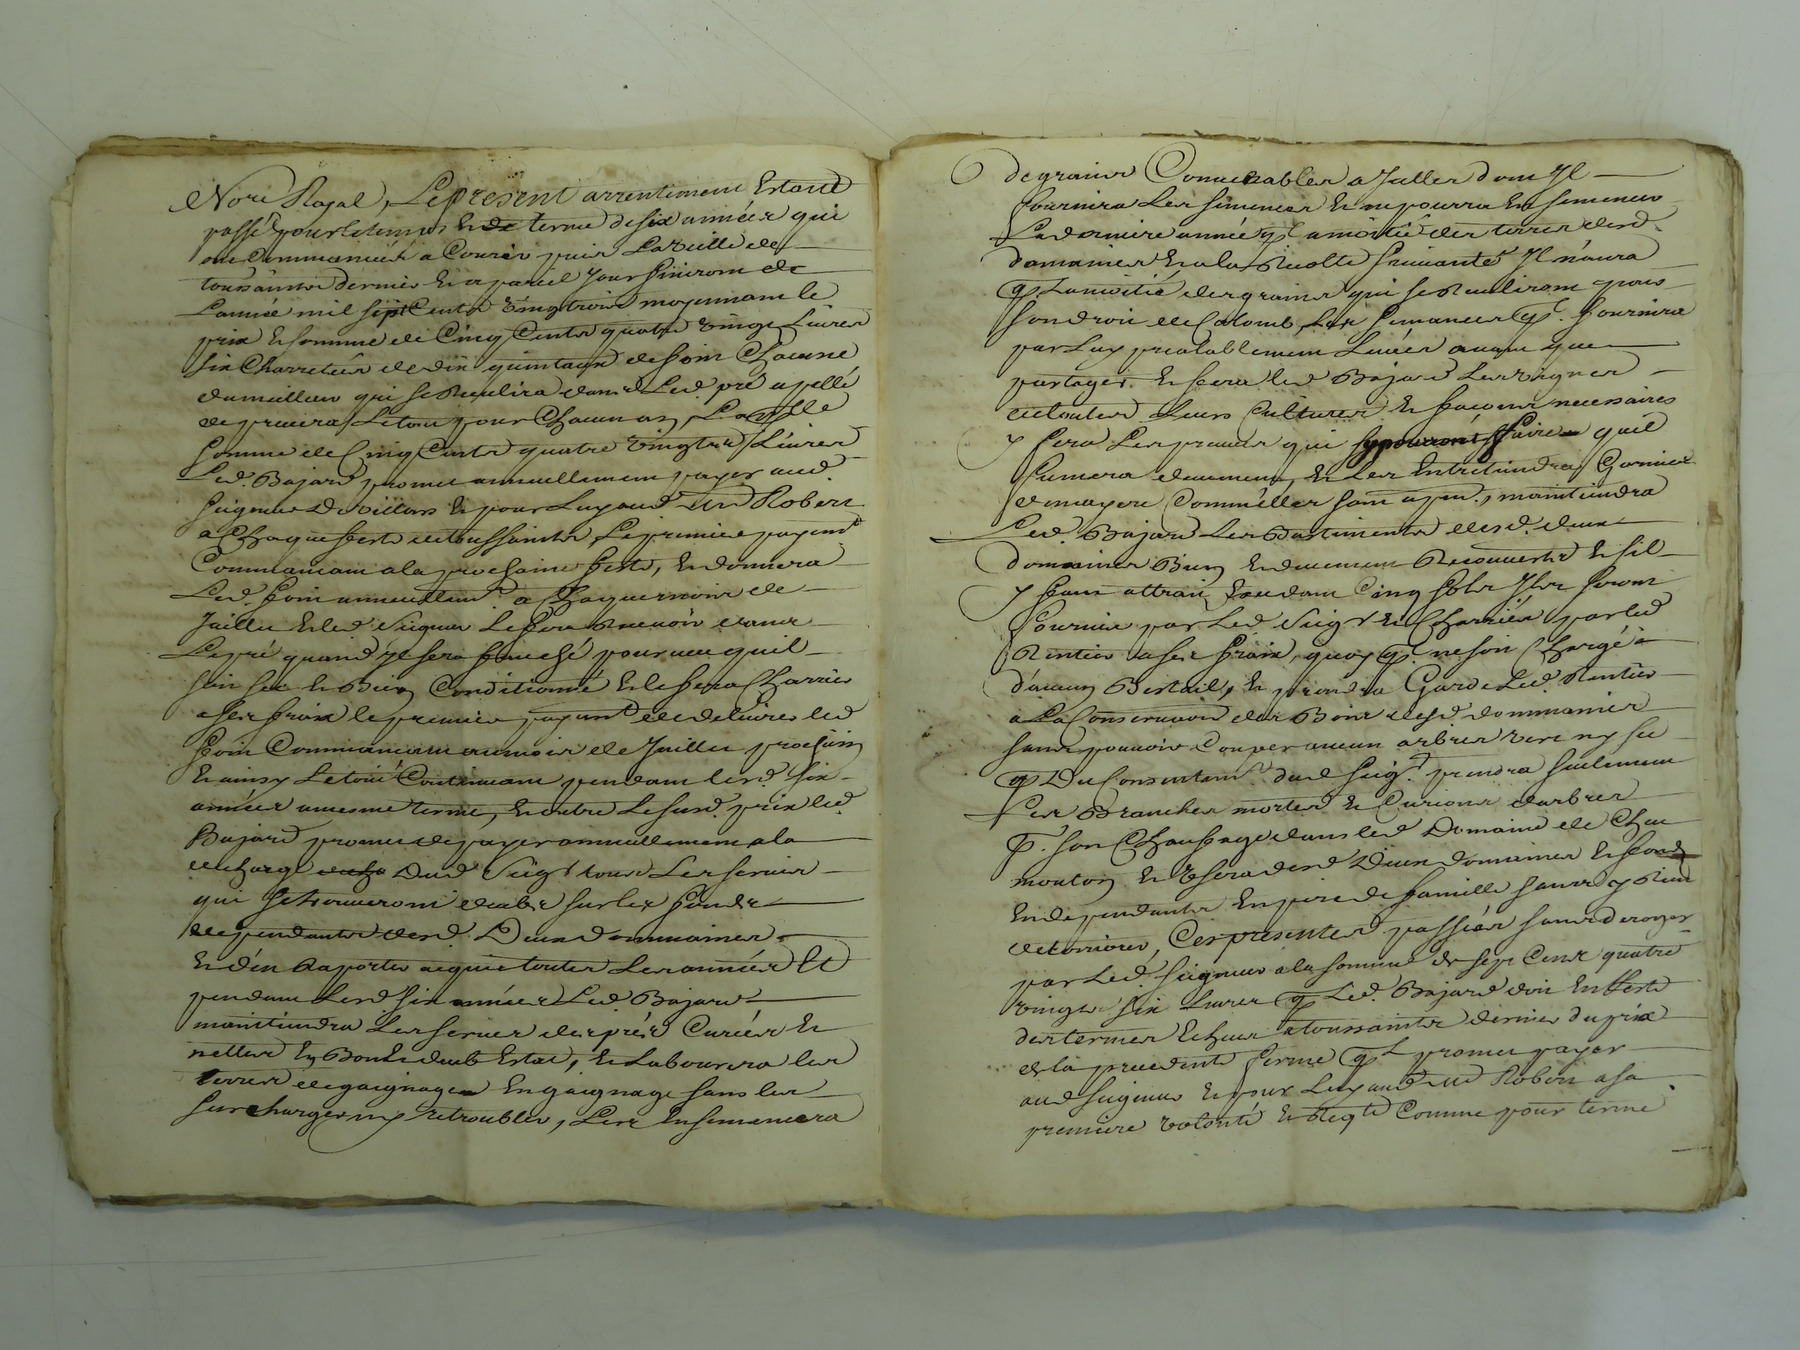 Nore Royal, Le present arrentement Estant
passé pour le temps Et de terme de six années qui
ont Commancés a Courir puis La veille de
toussaintz dernier Et a pareil Jour finiront de
L'année mil sept Cents vingt trois moyennant le
prix Et somme de Cinq Cents quatre vingt Livres
six Charretées de dix quintaux de foin Chacune
du meilleur qui se Receulira dans Led. pré apellé
de Le tout pour Chacun an, Laqlle
somme de Cinq Cents quatre vingts Livres
Led. Bajard promet annuellement payer aud.
seigneur De villars Et pour Luy aud. Sr Robert
a Chaque feste de toussaintz, Le premier payemt
Commancant a la prochaine feste, Et donnera
Led. foin annuellemt. a Chaque mois de
Juillet Et led. seigneur Le fera Recevoir dans
Le pré quand yl sera fauché pourveu quil
soit sec Et Bien Conditionné Et le fera Charrier
a ses fraix le premier payemt de delivrer led
foin Commancant au mois de Juillet prochain
Et ainsy Le tout Continuant pendant lesd. six
années a mesme terme, Et outre Le susd. prix led.
Bajard promet de payer annuellement a la
decharge Dud Seigr tous Les servis
qui se trouveront deubs sur les fonds
dependants desd. Deux dommaines
Et d'en Raporter aquit toutes Les années Et
pendant Lesd six années Led. Bajard
maintiendra Les serves des prés Curées Et
nettes En Bon Et deub Estat, Et Labourera les
terres de gaignages En gaignage sans les
surcharger ny retroubler, Les Ensemancera
de grains Convenables a Jceller dont Jl
fournira Les semences Et ne pourra Ensemencer
La derniere année q. la moitié des terres desd.
domaines Et a la Recolte suivante Jl n'aura
q. La moitié des grains qui se Receuliront pour
son droit de Colomb, Les semances q.l fournira
par Luy prealablement Levées avant que
partager. Et fera led Bajard Les vignes
de toutes Leurs Cultures Et facons necessaires
y fera Les preuves qui sy pourront faire quil
fumera deuement, Et Les Entretiendra Garnies
de mayere Comme elles sont apen., maintiendra
Led. Bajard Les Bastiments desd. deux
domaines Bien Et deuement Recouverts Et sil
y faut attrait Excedant Cinq sols Jls seront
fournis par Led Seigr Et Charriés par led
Rentier a ses fraix, quoy q. ne soit Chargé
d'aucun Bestail, Et prendra Garde Led. Rentier
a La Conservation des Bois desd. dommaines
sans pouvoir Couper aucun arbres vert ny sec
q. Du Consentemt dud seigr. prendra seulement
Les Branches mortes Et Curions d'arbres
p. son Chaufage dans led Domaine de Chac
mouton Et Usera desd Deux domaines Et fonds
En dependants En pere de famille sans y Rien
deteriorer, Ces presentes passées sans deroger
par Led. seigneur a la somme de sept Cens quatre
vingts six Livres q. Led. Bajard doit En Reste
des termes Echeus a toussaintz dernier du prix
de la precedente ferme q.l promet payer
aud seigneur Et pour Luy aud. Sr Robert a sa
premiere volonté Et Reqte Comme pour terme